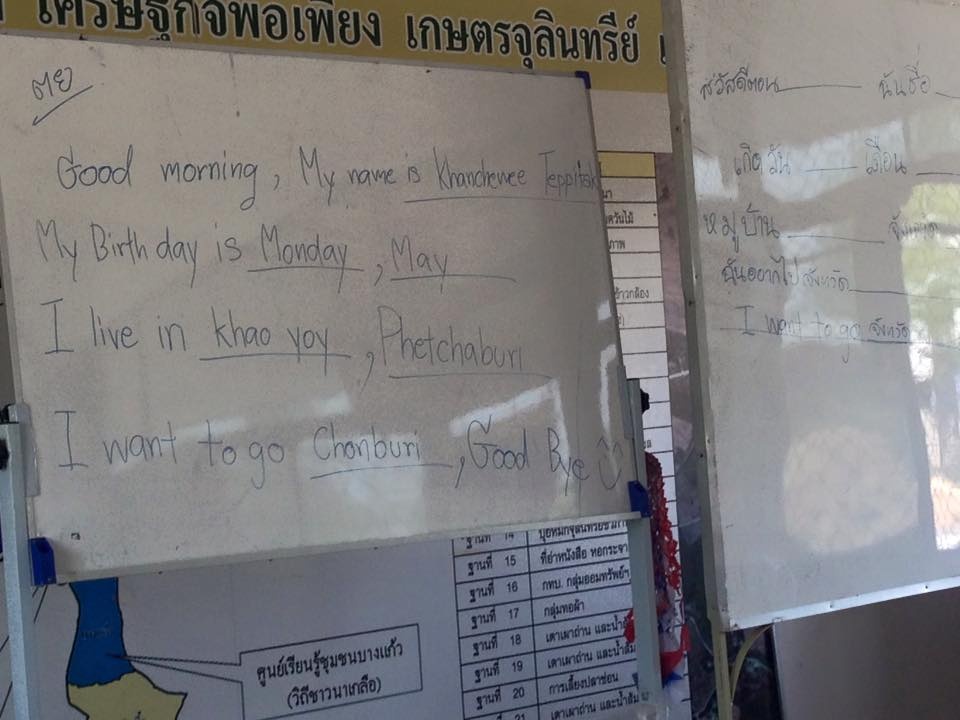 เศรษฐกิจพอเพียง เกษตรจุลินทรีย์
ตย
Good morning, My name is Khanchewee Teppitak
My Birthday is Monday, May
I live in khao yoy, Phetchaburi
I want to go Chonburi, Good Bye
สวัสดีตอน ฉันชื่อ
เกิดวัน เดือน
หมู่บ้าน จังหวัด
ฉันอยากไปจังหวัด
I want to go จังหวัด
ฐานที่ 14
ฐานที่ 15 ที่อ่านหนังสือ หอกระจา
ฐานที่ 16 กทบ. กลุ่มออมทรัพย์ฯ
ฐานที่ 17 กลุ่มทอผ้า
ฐานที่ 18 เตาเผาถ่าน และน้ำส้
ฐานที่ 19 เตาเผาถ่าน และน้ำส้ม
ฐานที่ 20 การเลี้ยงปลาช่อน
21 เตาเผาถ่าน และน้ำส้ม
ศูนย์เรียนรู้ชุมชนบางแก้ว
(วิถีชาวนาเกลือ)